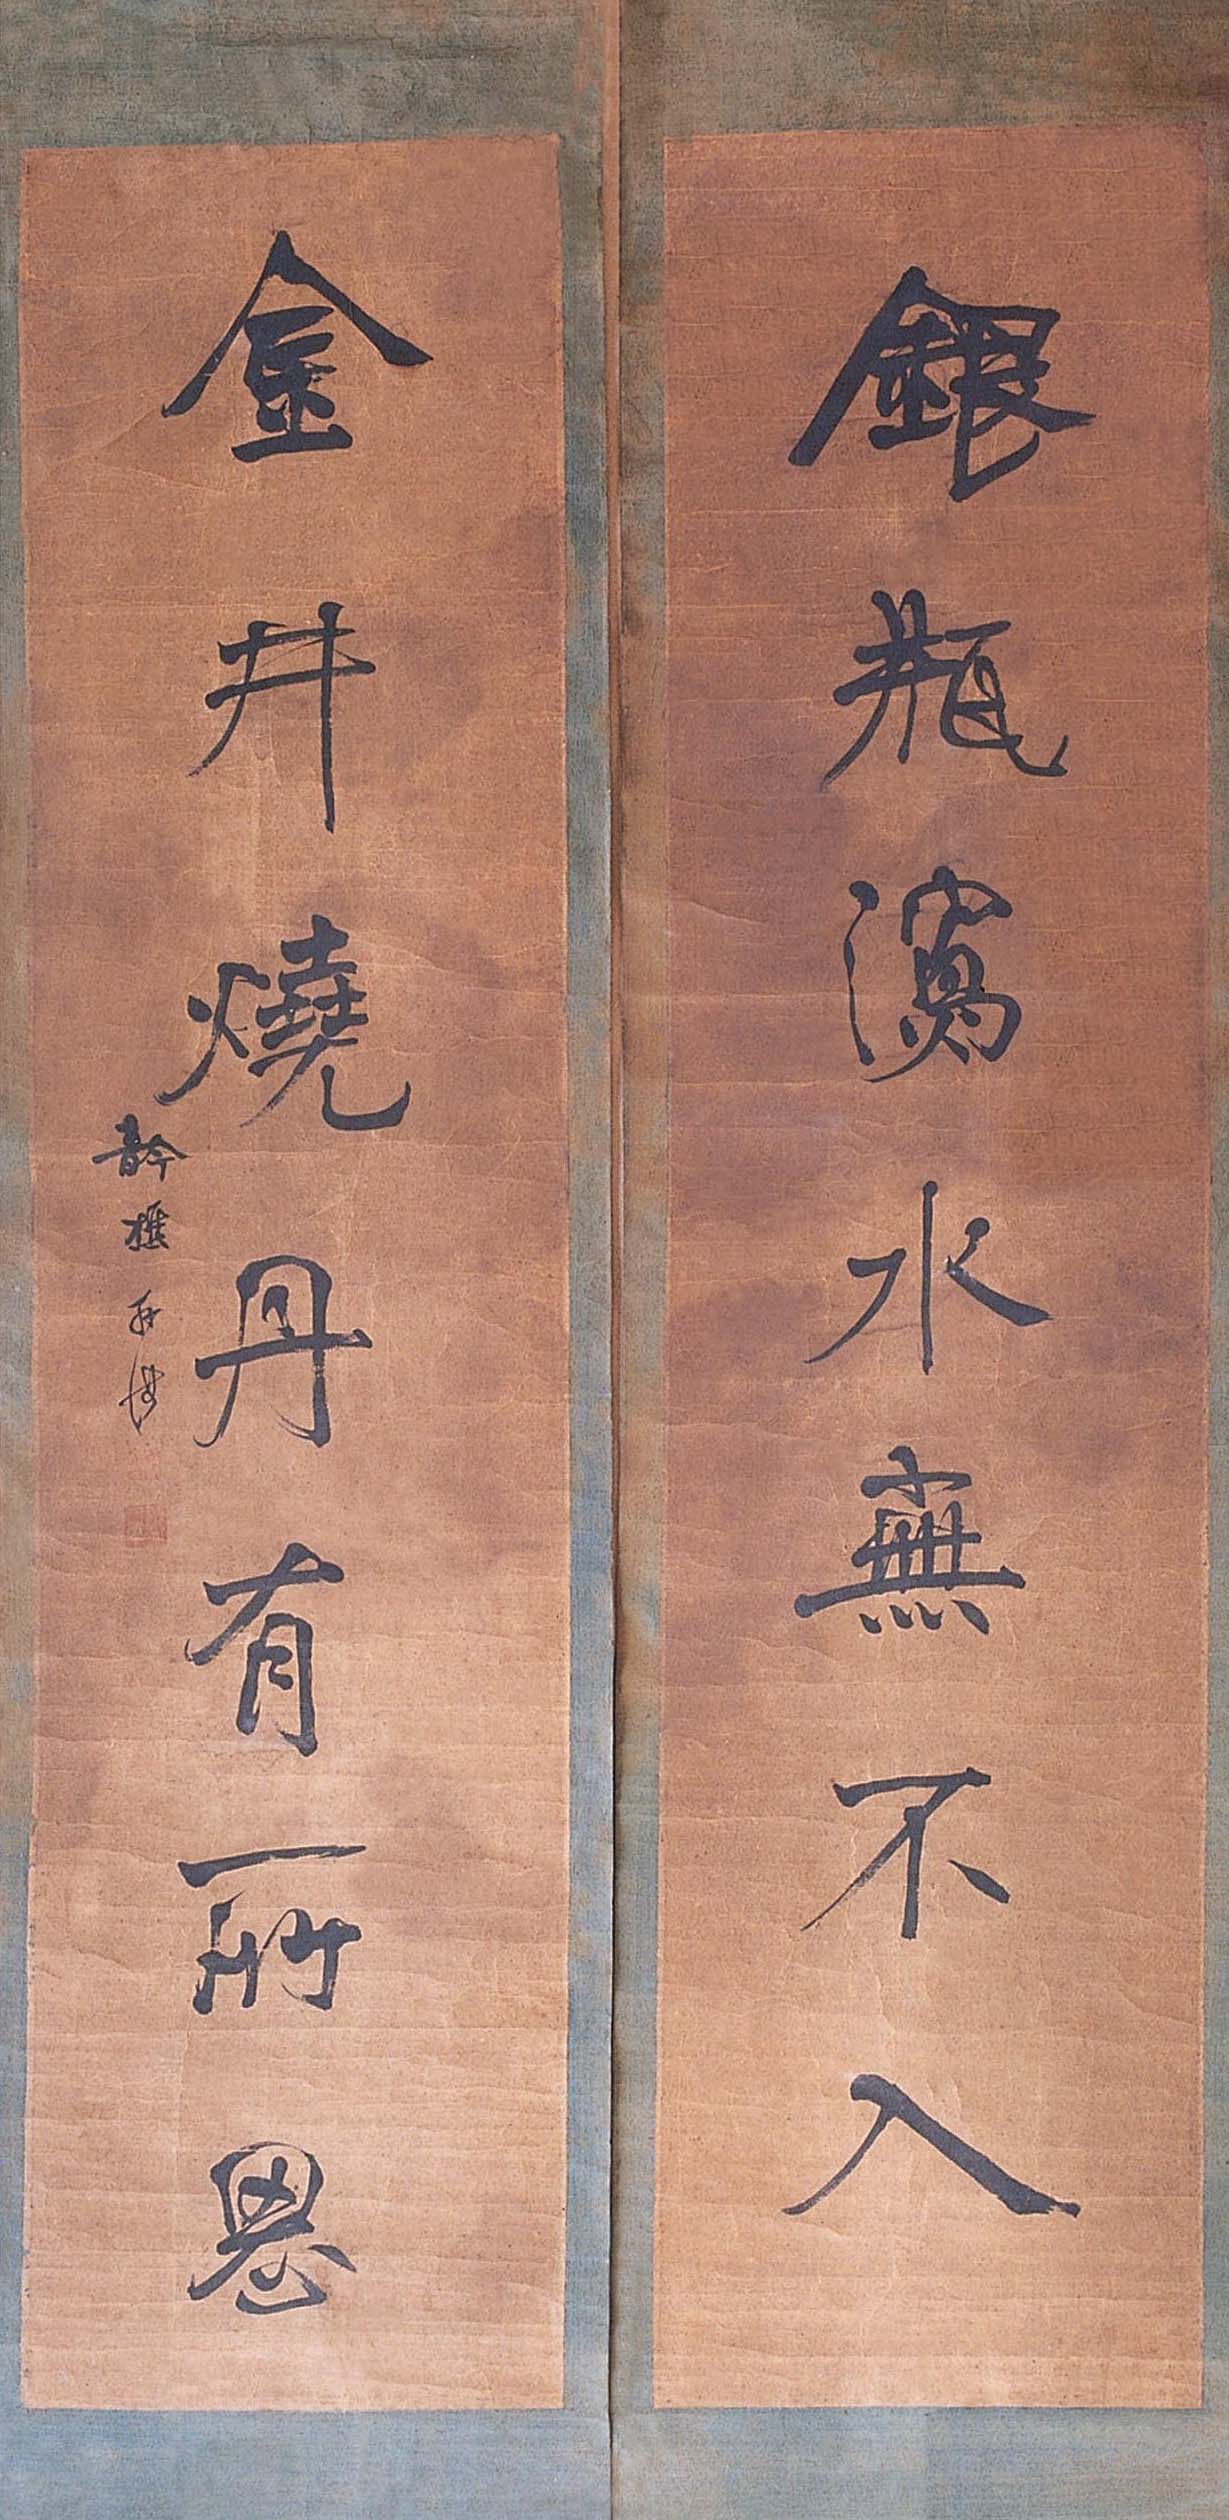 銀瓶瀉水無不入
金井燒丹有所思
樵